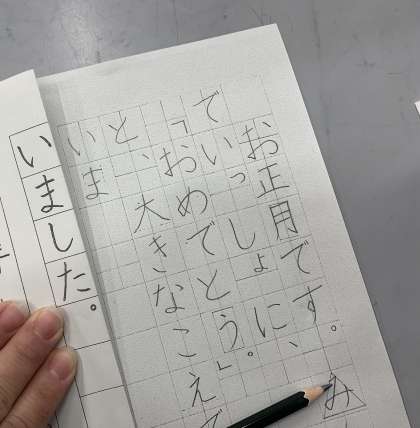 お正月です。み
でいっしょに、
「おめでとう。」
と、大きなこえで
いま
いました。